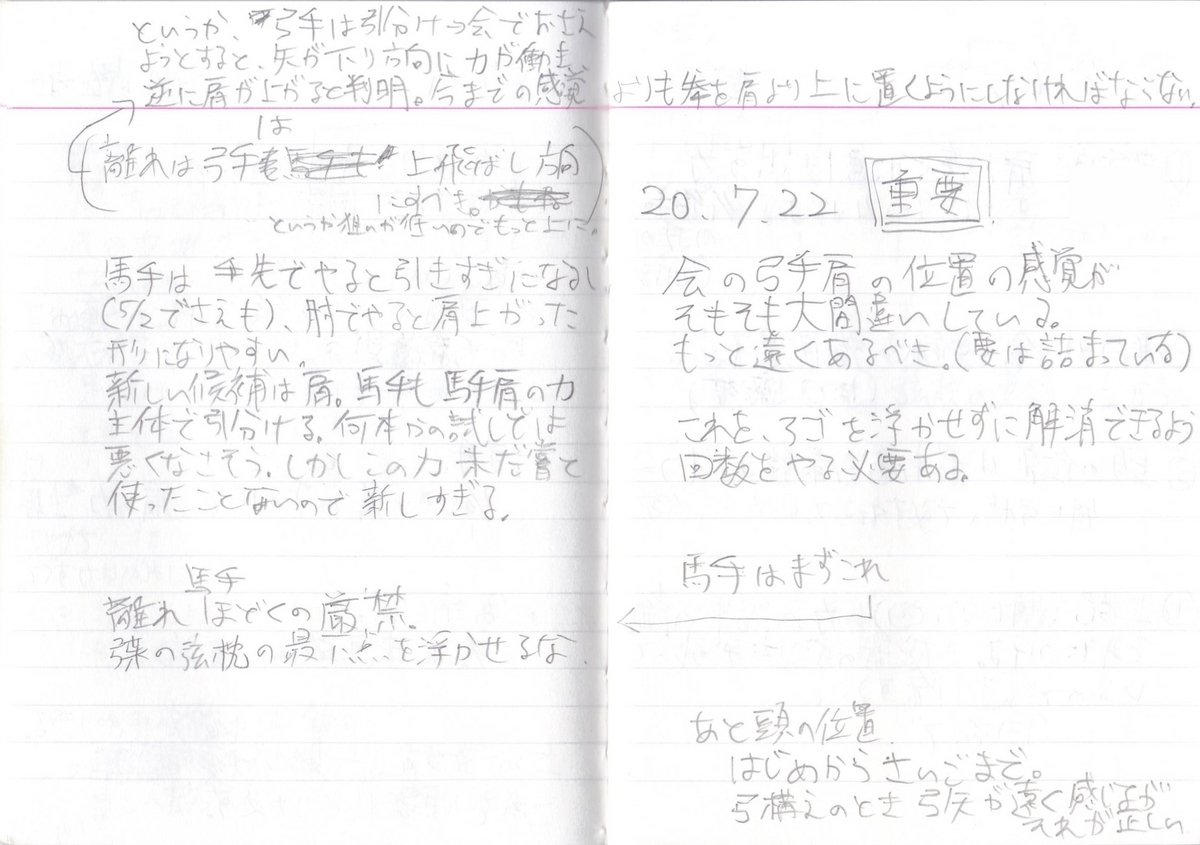 というか、弓手は引分け→会でおさえ
ようとすると、矢が下り方向に力が働き、
逆に肩が上がると判明。今までの感覚よりも拳を肩より上に置くようにしなければならない。
離れは弓手は 上飛ばし方向
にすべき。
というか狙いが低いのでもっと上に。
馬手は 手先でやると引きすぎになるし
(5/2でさえも)、肘でやると肩上がった
形になりやすい。
新しい候補は肩。馬手も馬手肩の力
主体で引分ける。何本かの試しでは
悪くなさそう。しかしこの力未だ嘗て
使ったことないので新しすぎる。
馬手
離れ ほどくの厳禁。
弽の弦枕の最下点を浮かせるな.
20.7.22 重要
会の弓手肩の位置の感覚が
そもそも大間違いしている。
もっと遠くあるべき。(要は詰まっている)
これを、アゴを浮かせずに解消できるよう
回数をやる必要ある。
馬手はまずこれ
あと頭の位置
はじめからさいごまで。
弓構えのとき弓矢が遠く感じるが
それが正しい